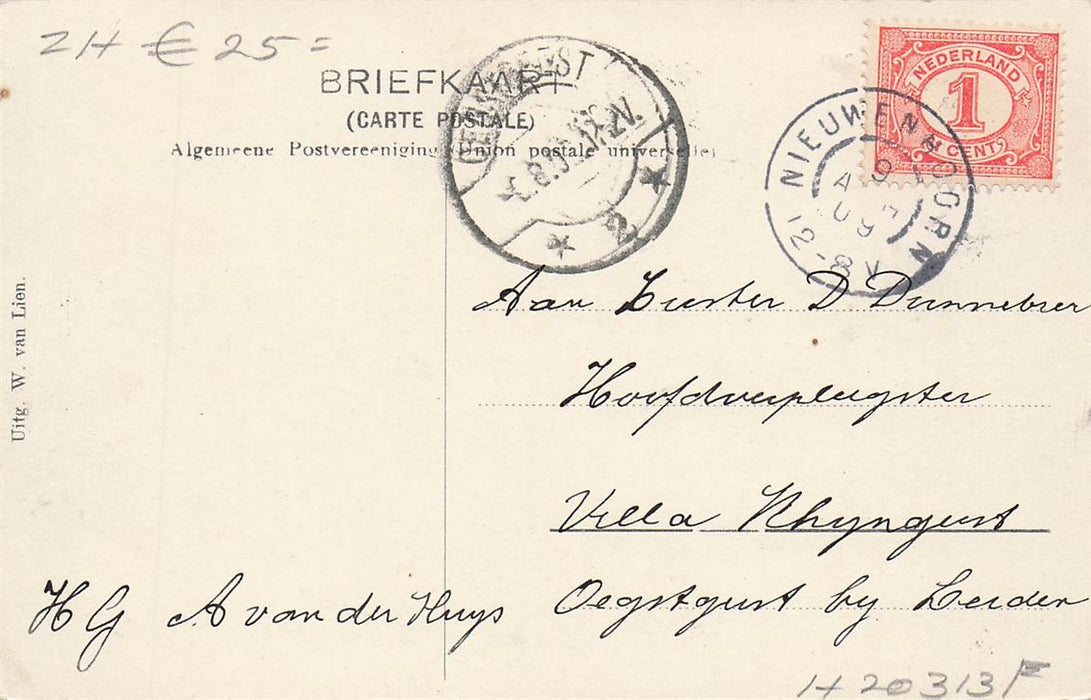 ZH € 25=
BRIEFKAART
(CARTE POSTALE)
Algemeene Postvereeniging (Union postale universelle)
NEDERLAND
1
CENT
NIEUWENHOORN
2
Uitg. W. van Lien.
Aan Zuster D Dunnebier
Hoofdverpleegster
Villa Rhyngeest
Oegstgeest by Leiden
H G A van der Huys
H 20313 F